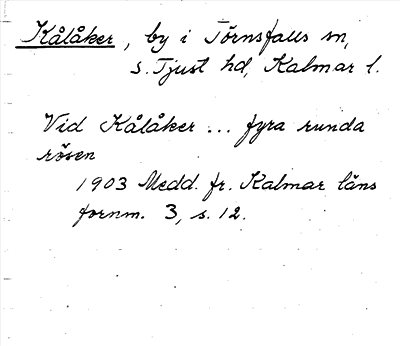 Kålåker, by i Törnsfalls sn,
S. Tjust hd, Kalmar l.
Vid Kålåker ... fyra runda
rösen
1903 Medd. fr. Kalmar läns
fornm. 3, s. 12.